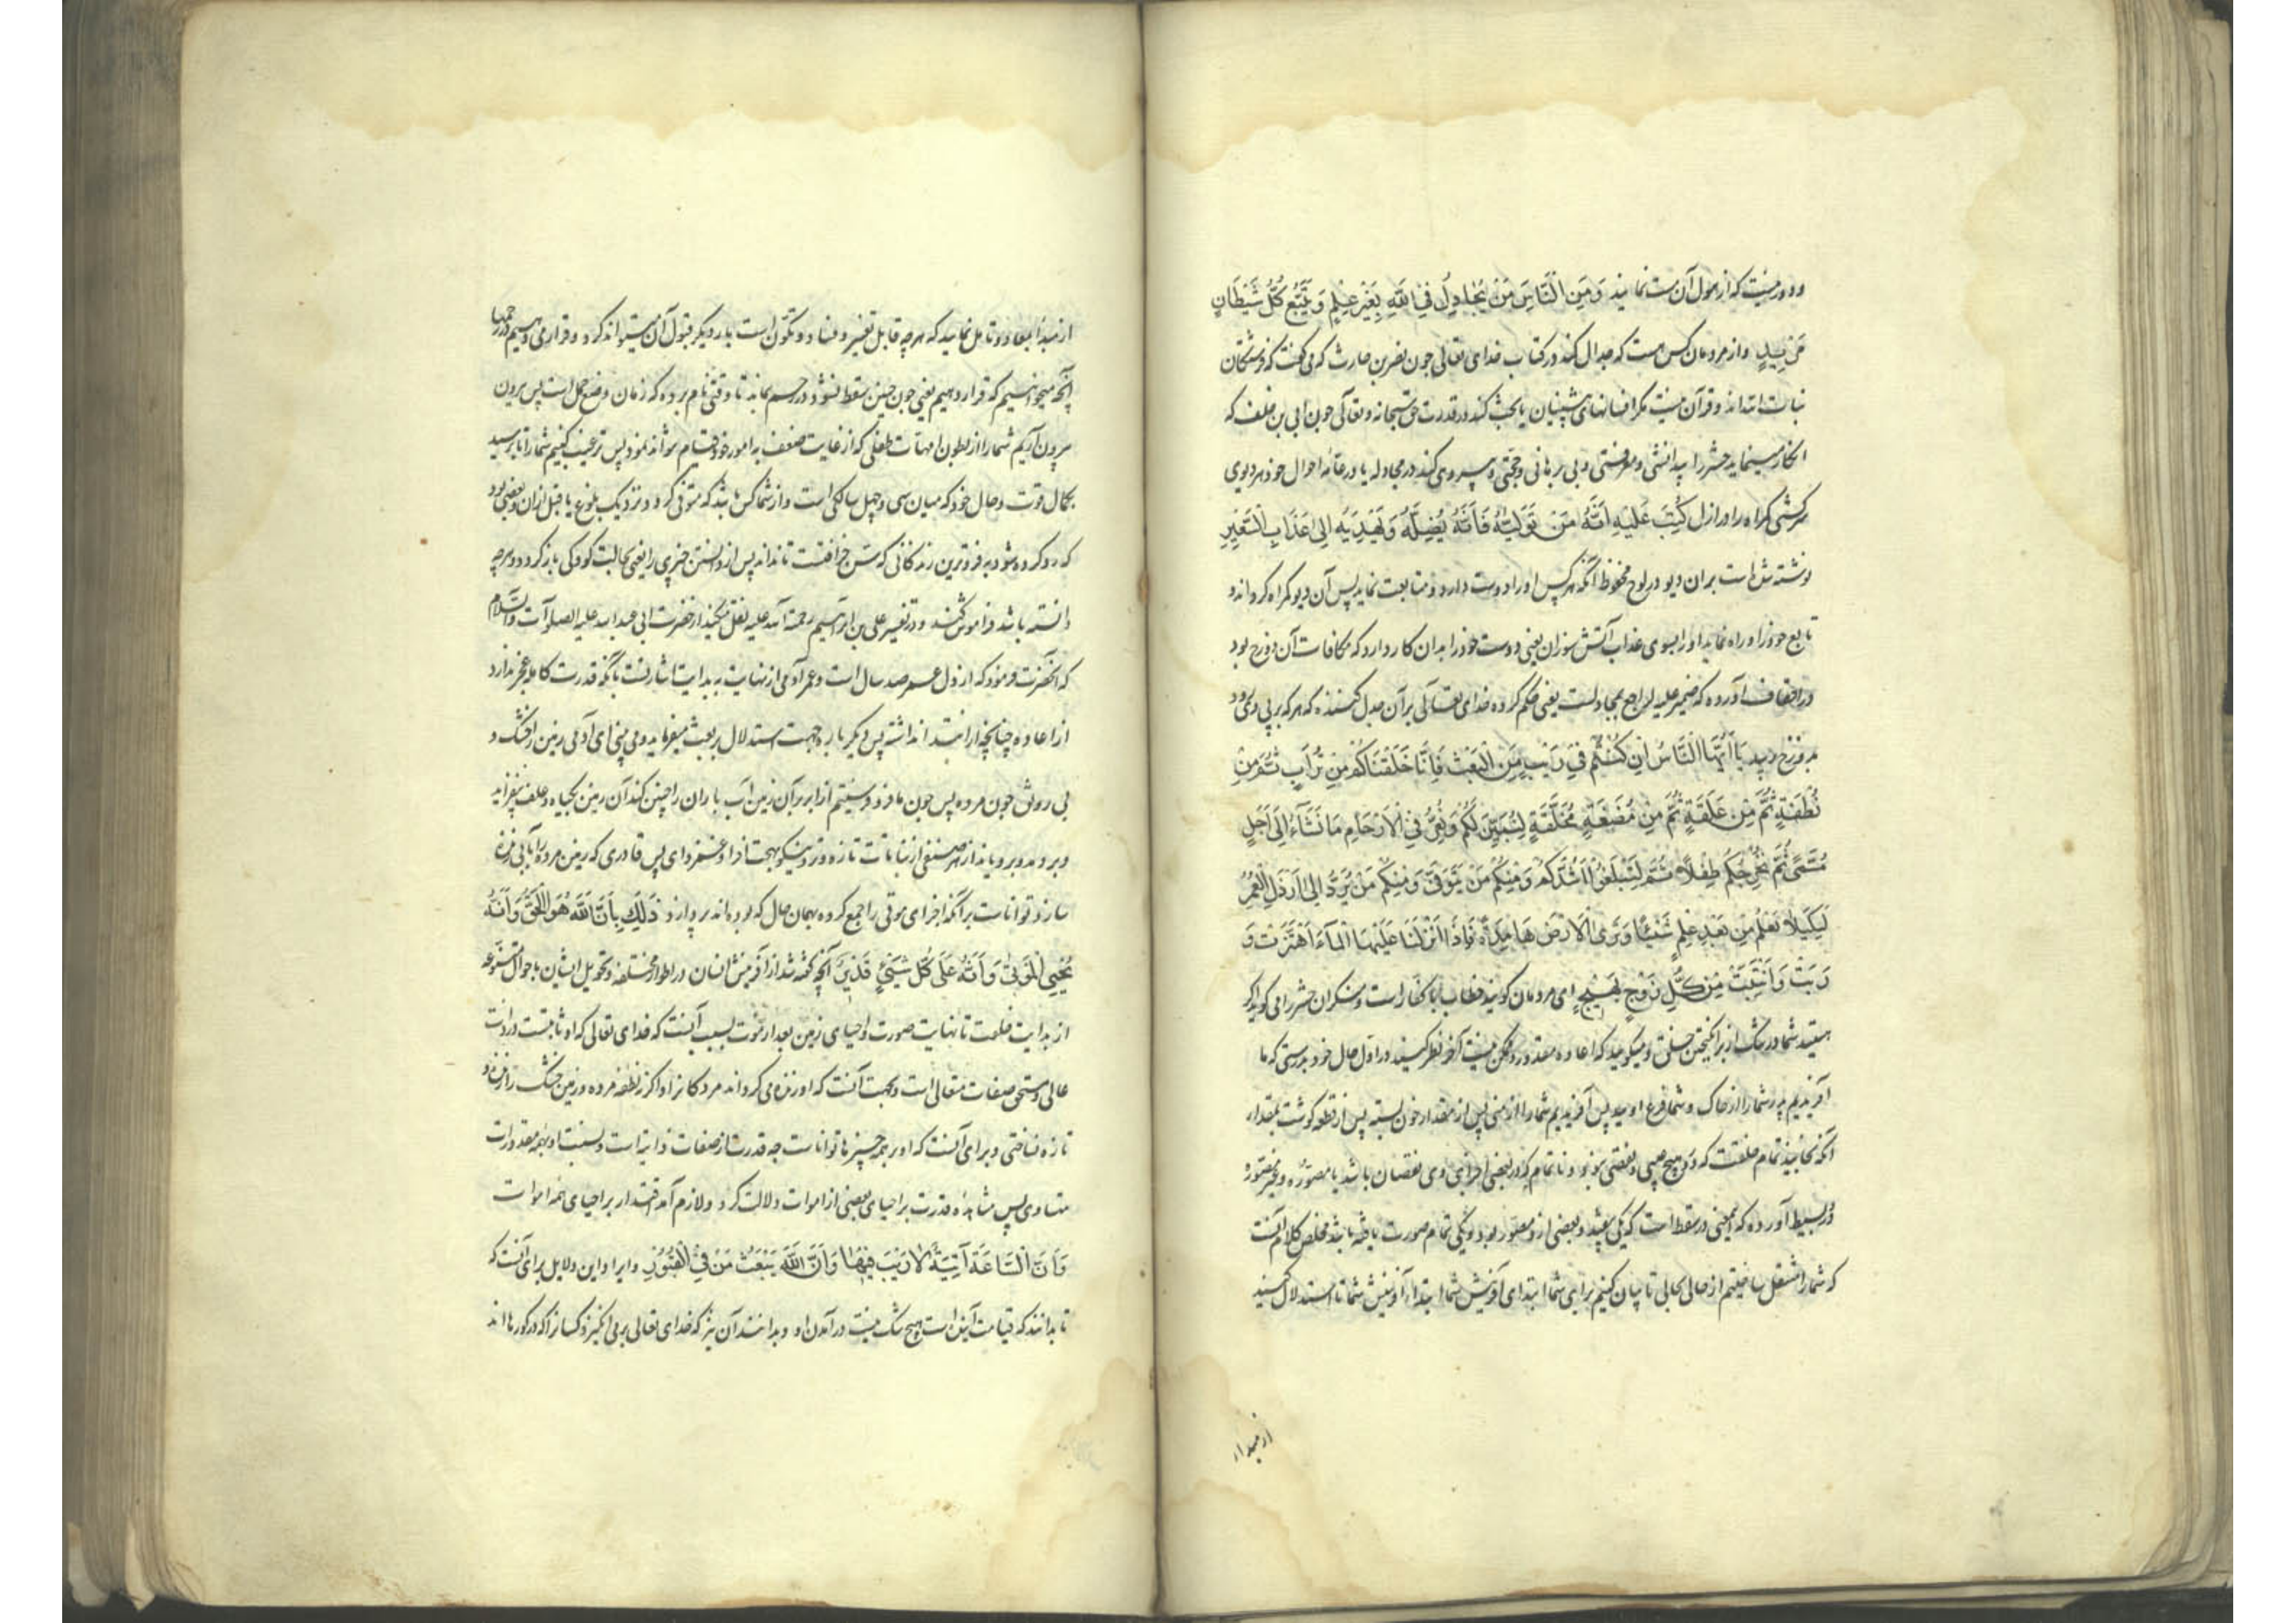 و دور نیست که از هول آن مست نمایند وَمِنَ النَّاسِ مَنْ يُجَادِلُ فِي اللَّهِ بِغَيْرِ عِلْمٍ وَيَتَّبِعُ كُلَّ شَيْطَانٍ
مَرِيدٍ و از مردمان کس هست که جدال کند در کتاب خدای تعالی چون نضر بن حارث که می گفت که فرشتگان
بنات الله اند و قرآن نیست مگر افسانهای پیشینیان یا بحث کند در قدرت حق سبحانه و تعالی چون ابی بن خلف که
انکار مینماید حشر را بیدانشی و معرفتی و بی برهانی و حجتی و پیروی کند در مجادله یا در عامه احوال خود هر دیوی
سرکشی گمراه را در ازل كُتِبَ عَلَيْهِ أَنَّهُ مَنْ تَوَلَّاهُ فَأَنَّهُ يُضِلُّهُ وَيَهْدِيهِ إِلَى عَذَابِ السَّعِيرِ
نوشته شده است بر آن دیو در لوح محفوظ آنکه هر کس او را دوست دارد و متابعت نماید پس آن دیو گمراه گرداند و
تابع خود را و راه نماید او را بسوی عذاب آتش سوزان یعنی دوست خود را بدان کار دارد که مکافات آن دوزخ بود
در احقاف آورده که ضمیر علیه راجع بمجادلست یعنی حکم کرده خدای تعالی بر آن جدل کننده که هر که بر پی وی رود
بدوزخ رسد يَا أَيُّهَا النَّاسُ إِنْ كُنْتُمْ فِي رَيْبٍ مِنَ الْبَعْثِ فَإِنَّا خَلَقْنَاكُمْ مِنْ تُرَابٍ ثُمَّ مِنْ
نُطْفَةٍ ثُمَّ مِنْ عَلَقَةٍ ثُمَّ مِنْ مُضْغَةٍ مُخَلَّقَةٍ لِنُبَيِّنَ لَكُمْ وَنُقِرُّ فِي الْأَرْحَامِ مَا نَشَاءُ إِلَى أَجَلٍ
مُسَمًّى ثُمَّ نُخْرِجُكُمْ طِفْلًا ثُمَّ لِتَبْلُغُوا أَشُدَّكُمْ وَمِنْكُمْ مَنْ يُتَوَفَّى وَمِنْكُمْ مَنْ يُرَدُّ إِلَى أَرْذَلِ الْعُمُرِ
لِكَيْلَا يَعْلَمَ مِنْ بَعْدِ عِلْمٍ شَيْئًا وَتَرَى الْأَرْضَ هَامِدَةً فَإِذَا أَنْزَلْنَا عَلَيْهَا الْمَاءَ اهْتَزَّتْ وَ
رَبَتْ وَأَنْبَتَتْ مِنْ كُلِّ زَوْجٍ بَهِيجٍ ای مردمان گویند خطاب با کفار است و منکران حشر را می گوید اگر
هستید شما در شک از برانگیختن خلق و میگویید که اعاده مقدور و ممکن نیست آخر نظر کنید در اول حال خود بدرستی که ما
آفریدیم پدر شما را از خاک و شما فرع اویید پس آفریدیم شما را از منی پس از مقدار خون بسته پس از قطعه گوشت بمقدار
آنکه بخایند تمام خلقت که در وی هیچ عیبی و نقصی نبود و ناتمام که در بعضی اجزای وی نقصان باشد یا مصوره و غیر مصوره
در بسیط آورده که این معنی در سقط است که یکی بیفتد و بعضی از و مصور بود و یکی تمام صورت یافته باشد مخلص کلام آنست
که شما را منتقل ساختیم از حالی بحالی تا بیان کنیم برای شما ابتدای آفرینش شما ابتداء آفرینش شما تا استدلال کنید
از مبداء
از مبدا بمعاد و تامل نمایید که هر چه قابل تغییر و فساد و تکون است بار دیگر قبول آن میتواند کرد و قرار می دهیم در رحمها
آنچه میخواهیم که قرار دهیم یعنی چون جنین سقط نشود در رحم بماند تا وقتی نام برده که زمان وضع حمل است پس برون
برون آریم شما را از بطون امهات طفلی که از غایت ضعف به امور خود قیام نتواند نمود پس تربیت کنیم شما را تا برسید
بکمال قوت و حال خود که میان سی و چهل سالگی است و از شما کس باشد که متوفی گردد نزدیک بلوغ یا قبل از آن و بعضی بود
که رد کرده شود به فروترین زندگانی که سن خرافتست تا نداند پس از دانستن چیزی را یعنی بحالت کودکی باز گردد و هر چه
دانسته باشد فراموش کند و در تفسیر علی بن ابراهیم رحمة الله علیه نقل میکند از حضرت ابی عبد الله علیه الصلوات والسلام
که آنحضرت فرمود که ارذل عمر صد سال است و عمر آدمی از نهایت به بدایت اشارتست بآنکه قدرت کامله عجز ندارد
از اعاده چنانچه از ابتدا نداشته پس دیگر باره جهت استدلال بر بعث میفرماید و می بینی ای آدمی زمین را خشک و
بی رونق چون مرده پس چون ما فرو فرستیم از ابر بر آن زمین آب باران را جنبش کند آن زمین بگیاه و علف بیفزاید
و بردمد و برویاند از هر صنفی از نباتات تازه و تر و نیکو بهجت افزا و غمزدای پس قادری که زمین مرده را بآبی زنده
سازد تواناست بر آنکه اجزای موتی را جمع کرده بهمان حال که بوده اند بر پا دارد ذَلِكَ بِأَنَّ اللَّهَ هُوَ الْحَقُّ وَأَنَّهُ
يُحْيِي الْمَوْتَى وَأَنَّهُ عَلَى كُلِّ شَيْءٍ قَدِيرٌ آنچه گفته شد از آفرینش انسان در اطوار مختلفه و تحویل ایشان باحوال متنوعه
از بدایت خلقت تا نهایت صورت و احیای زمین بعد از موت بسبب آنست که خدای تعالی که او ثابتست در ذات
عالی و مستحق صفات متعالی است و بجهت آنست که او زنده می گرداند مردگانرا و اگر نه نطفه مرده و زمین خشک را زنده و
تازه نساختی و برای آنست که او بر همه چیزها تواناست چه قدرتش از صفات ذاتیه است و نسبت او بهمه مقدورات
متساوی پس مشاهده قدرت بر احیای بعضی از اموات دلالت کرد و لازم آمد اقتدار بر احیای همه اموات
وَأَنَّ السَّاعَةَ آتِيَةٌ لَا رَيْبَ فِيهَا وَأَنَّ اللَّهَ يَبْعَثُ مَنْ فِي الْقُبُورِ و ایراد این دلایل برای آنست که
تا بدانند که قیامت آینده است هیچ شک نیست در آمدن او و بدانند آن نیز که خدای تعالی بر می انگیزد کسانرا که در گورها اند